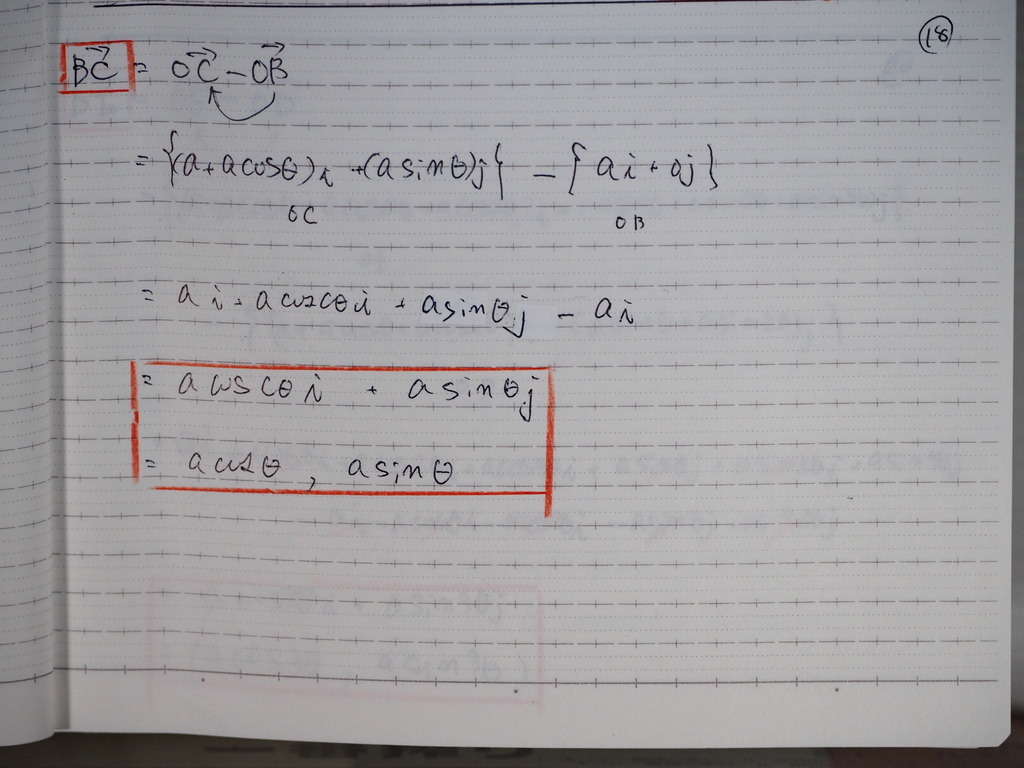 18
BC = OC - OB
= {(a + a cosθ) i + (a sinθ) j} - {a i + 0j}
OC OB
= a i + a coscθ i + a sinθ j - a i
= a coscθ i + a sinθ j
= a cosθ, a sinθ